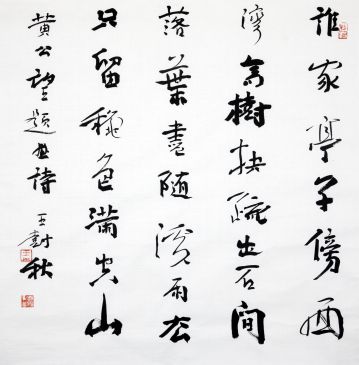 誰家亭子傍西
灣高樹扶疏出石間
落葉盡隨溪雨去
只留穐色滿空山
黄公望題畫詩 王樹秋